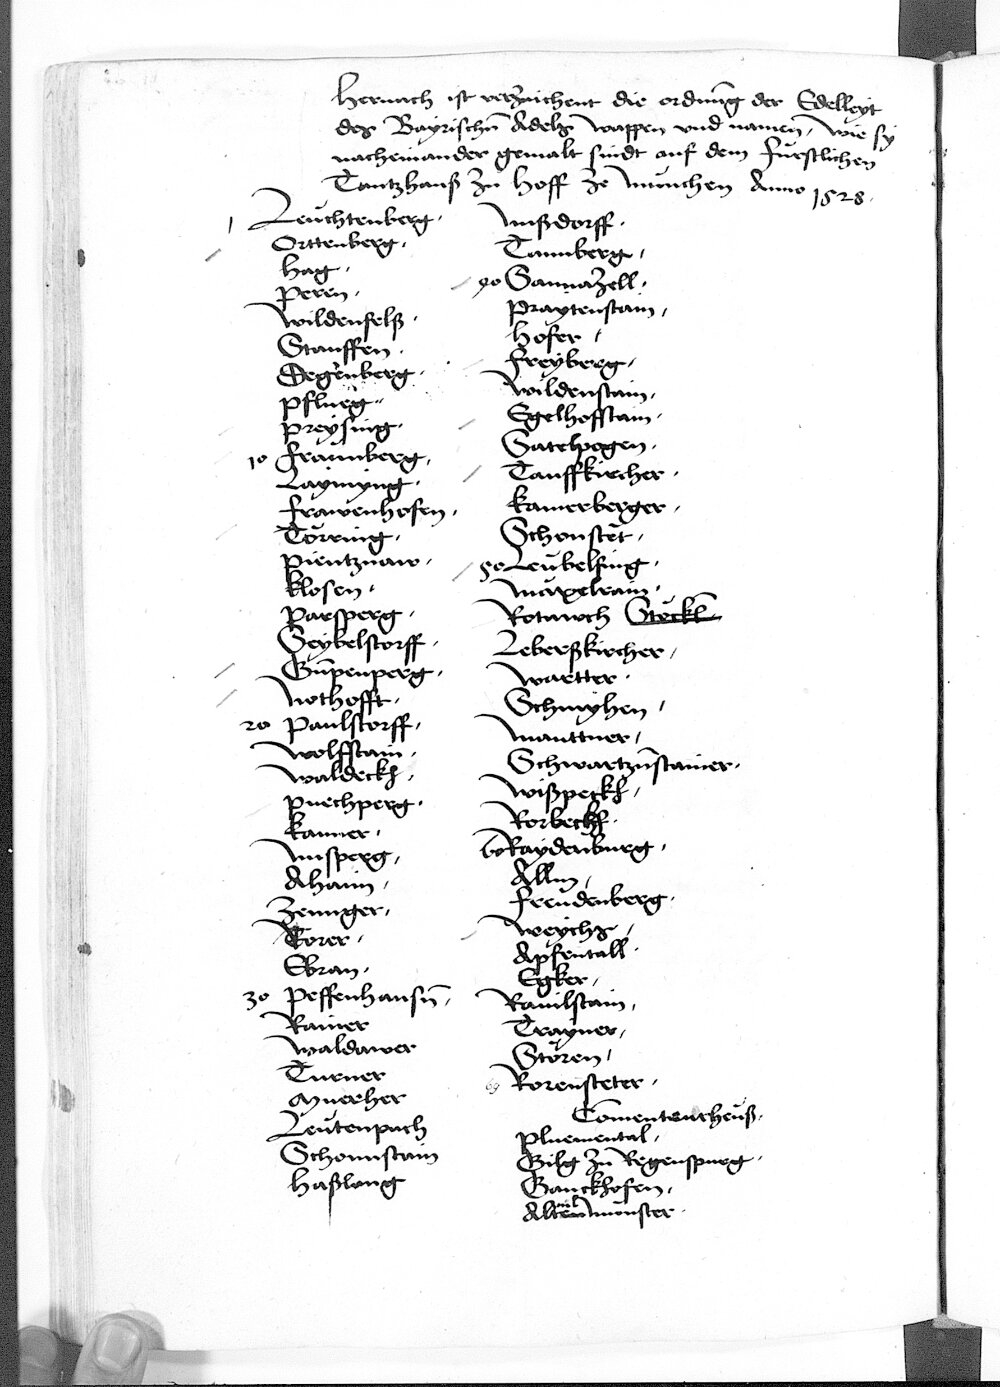 Hernach ist verzaichent die ordnung der Edelleyt
des Bayrischn Adels wappen und namen, wie sy
nacheinander gemalt sindt auf dem furstlichen
Tantzhauß zu Hoff ze munchen Anno 1528.
1 Leuchtenberg.
Orttenberg.
Hag.
Peren.
Wildenfelß.
Stauffen.
Degenberg.
Pflueg.
Preysing.
10 Fraunberg.
Laymyng.
Frawenhofen.
Torring.
Pientznaw.
Klosen.
Parsperg.
Seybelstorff.
Gumpenperg.
Nothofft.
20 Paulstorff.
Wolfstain.
Waldeckh.
Puechperg.
Kamer.
Nusperg.
Ahaim.
Zennger.
Torer.
Ebran.
30 Peffenhausn.
Rainer
Waldawer
Turner
Leutenpach
Schonnstain
Haßlang
Nußdorff.
Tannberg.
40 Sannizell.
Praytenstain.
Hofer
Freyberg.
Wildenstain.
Egelhofstain.
Satelpogen.
Tauffkircher.
Kamerberger.
Schonstet.
50 Leubelfing.
Maxelrain.
Rotawch Stockh
Leberßkircher.
Wartter.
Schmyhen
Manttner
Schwartznstainer.
Wißpeckh.
Rorbeckh.
60 Raydenburg.
Freudenberg.
Weychs.
Apfentall
Egker.
Ramlstain.
Trayner.
Storen
69 Rorensteter.
Pluemental.
Gilg zu Regenspurg.
Ganckhofen.